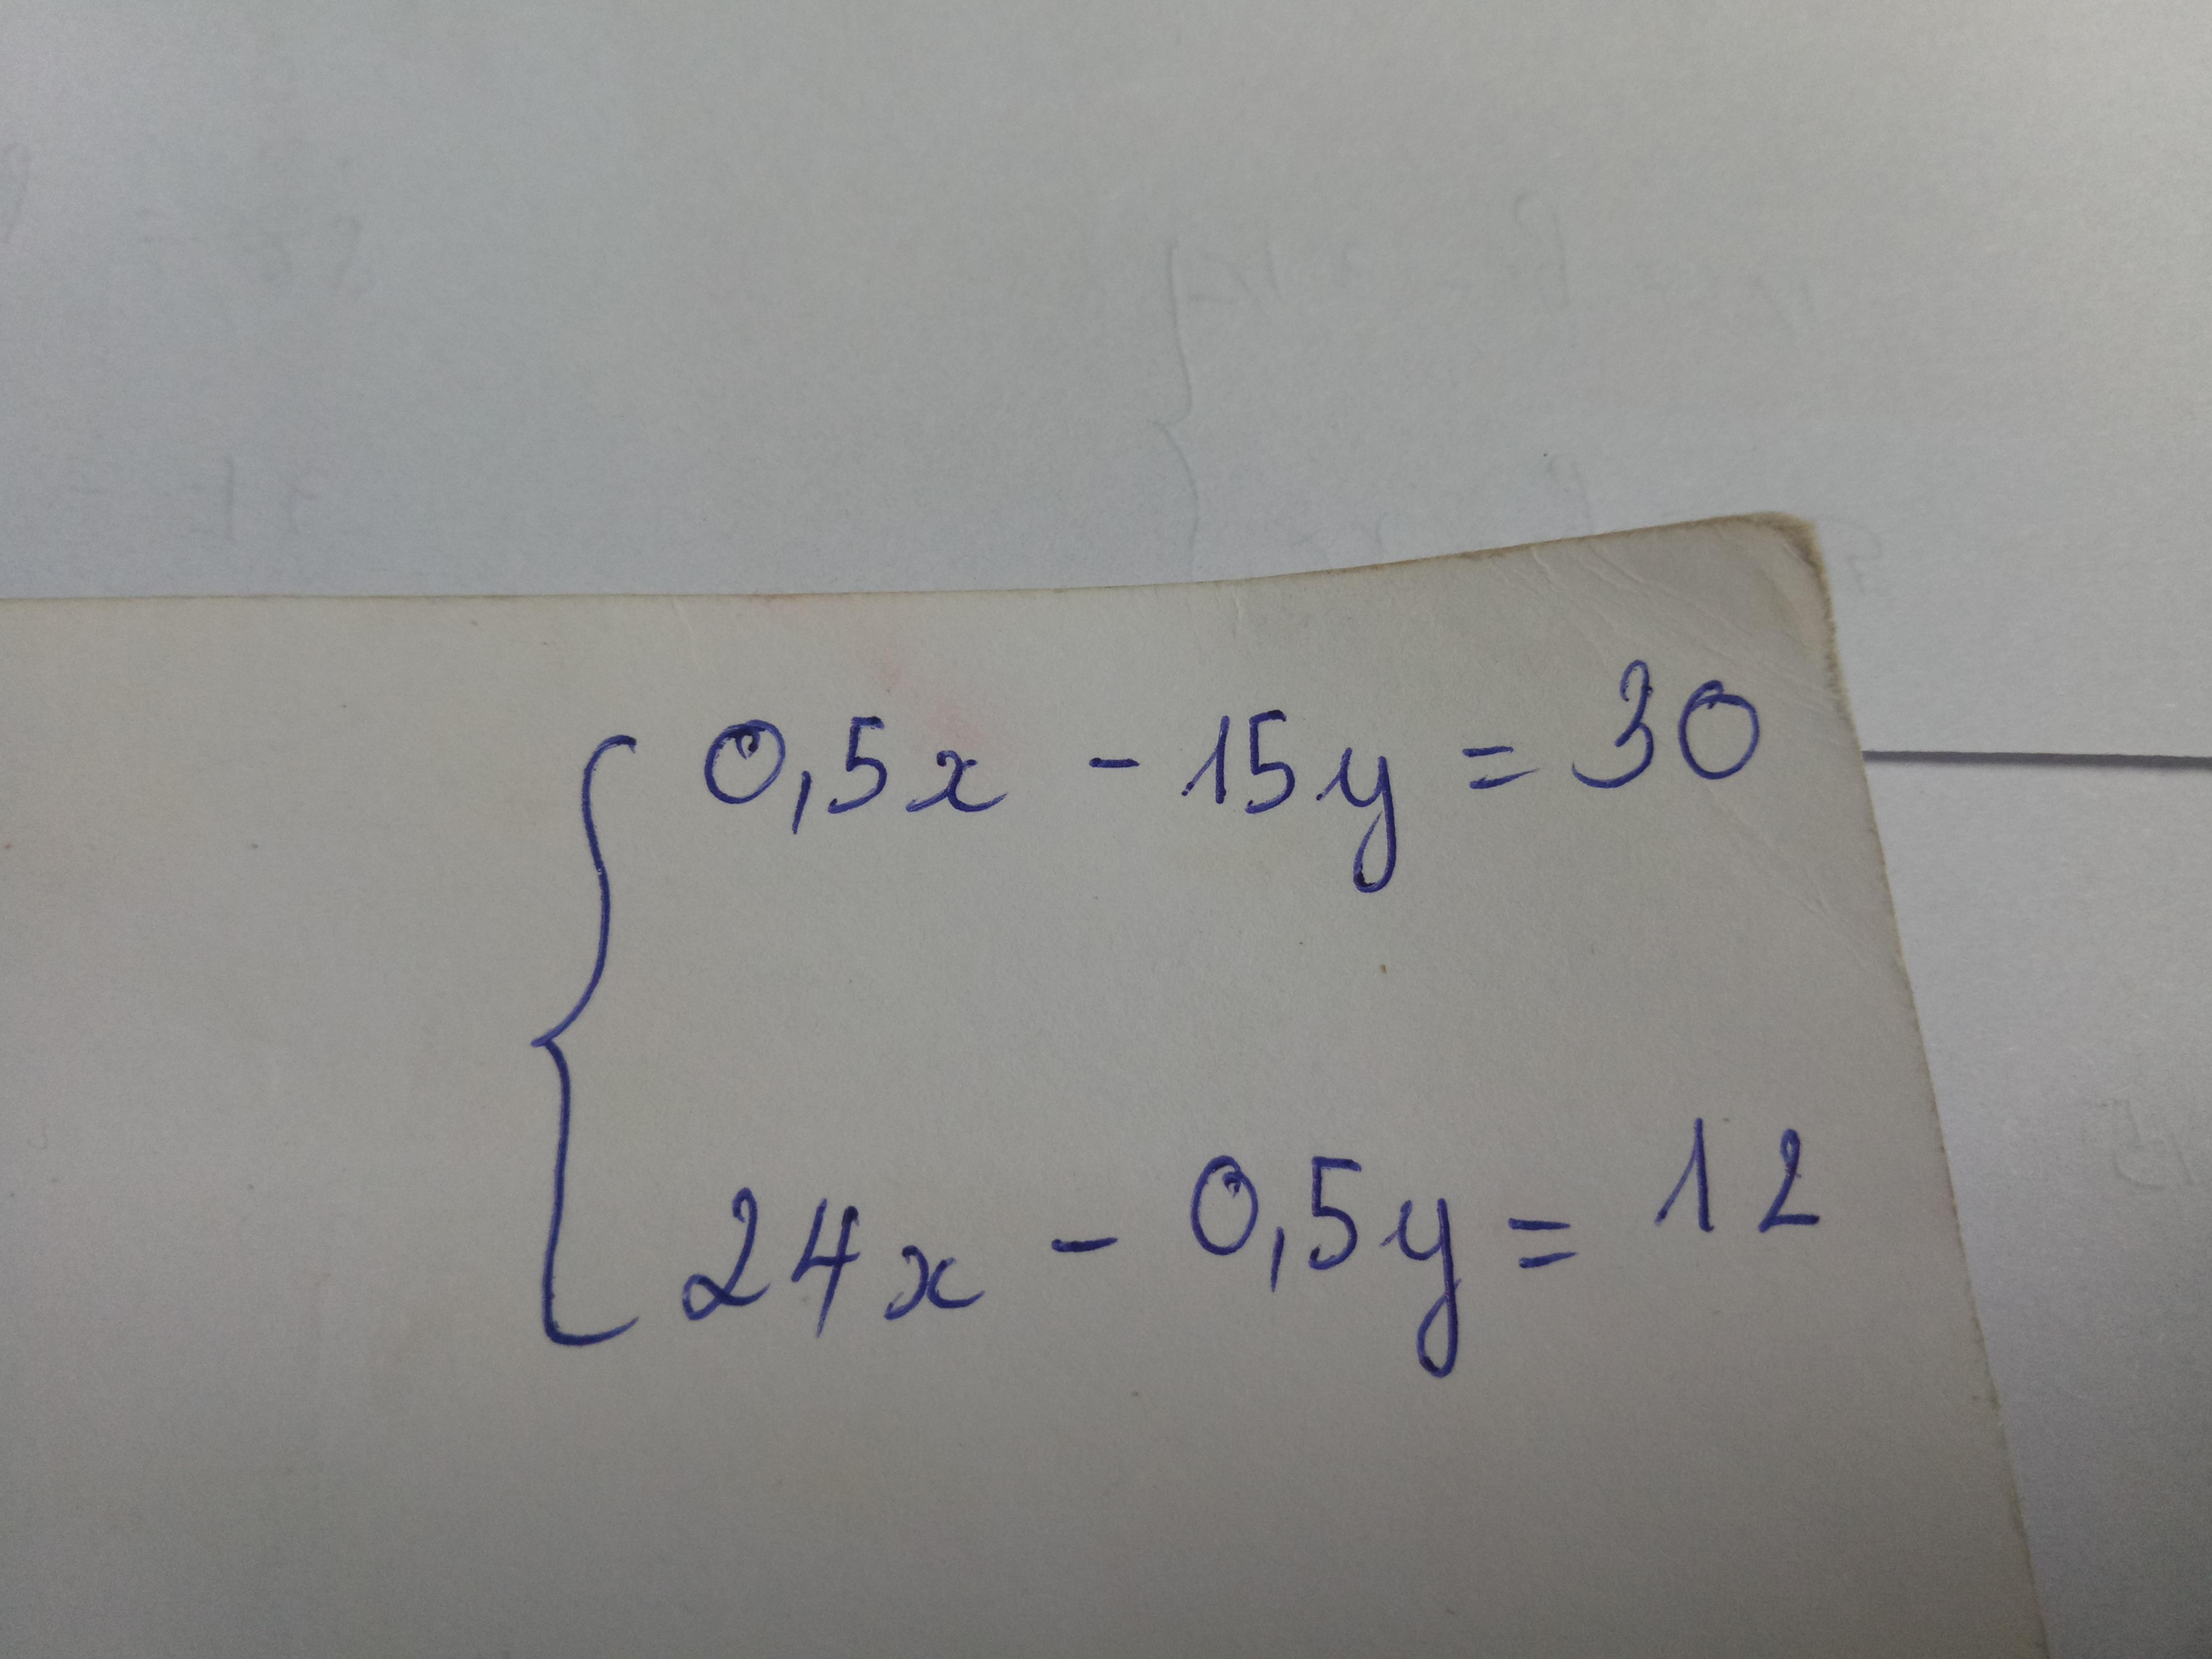 0,5x - 15y = 30
24x - 0,5y = 12